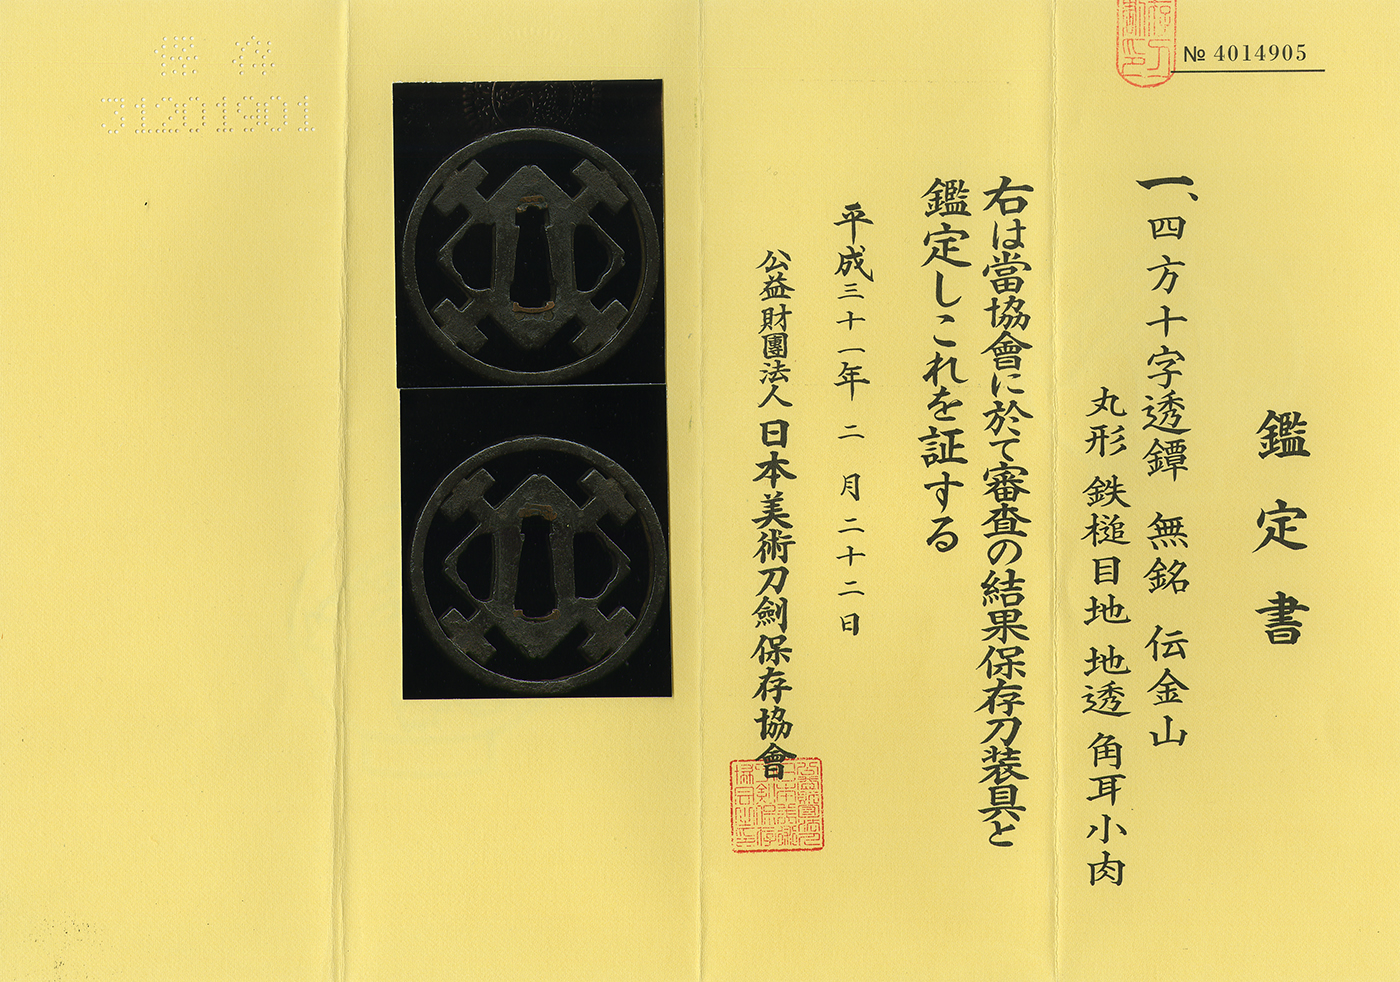 № 4014905
鑑定書
一、四方十字透鐔 無銘 伝金山
丸形 鉄槌目地 地透 角耳小肉
右は當協會に於て審査の結果保存刀装具と
鑑定しこれを証する
平成三十一年 二 月 二十二日
公益財團法人 日本美術刀劍保存協會
保存
31201901